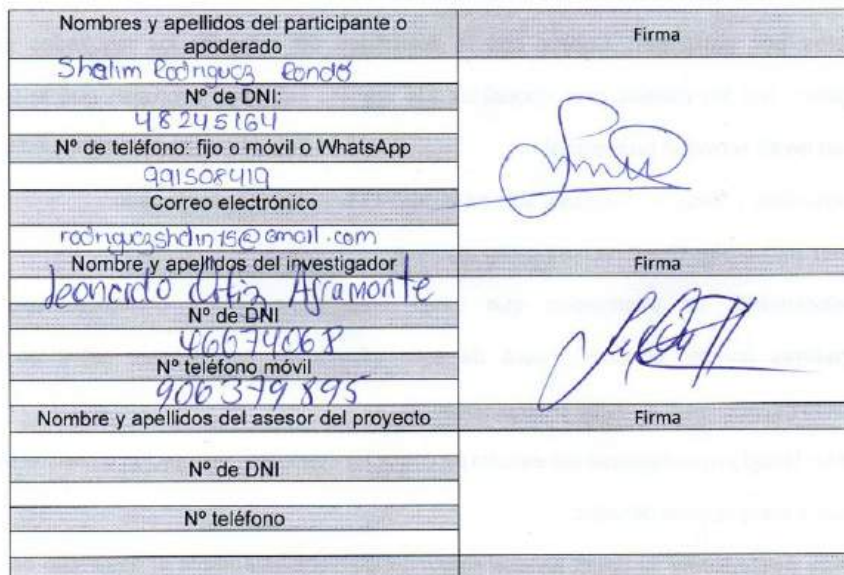 Nombres y apellidos del participante o
apoderado
Firma
Shalim Rodriguez Rondo
Nº de DNI:
48245164
Nº de teléfono: fijo o móvil o WhatsApp
991508419
Correo electrónico
Nombre y apellidos del investigador
Firma
Leonardo Ortiz Agramonte
Nº de DNI
46674068
Nº teléfono móvil
906379895
Nombre y apellidos del asesor del proyecto
Firma
Nº de DNI
Nº teléfono